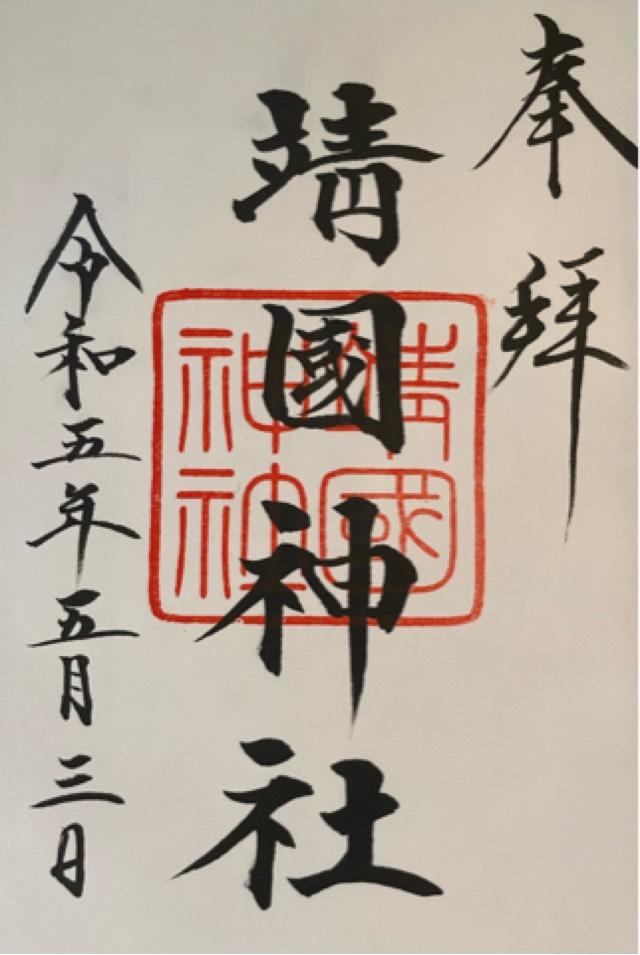 奉拝
靖國神社
靖國神社
令和五年五月三日